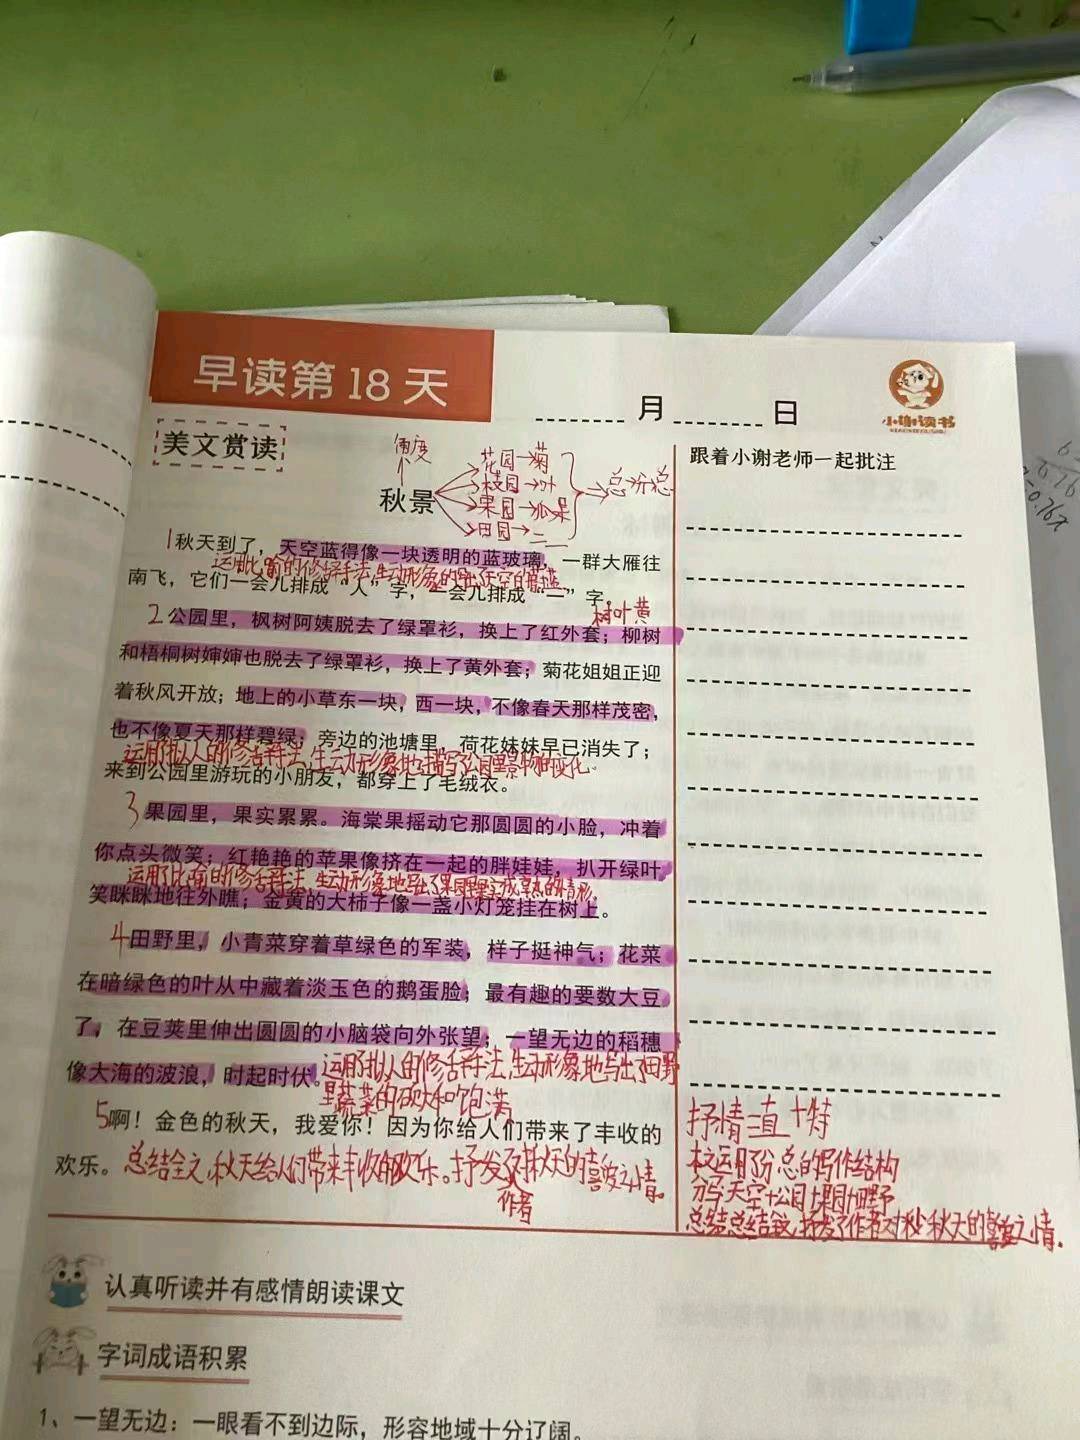 早读第 18 天
月 日
小谢读书
美文赏读
跟着小谢老师一起批注
角度
秋景
花园→菊
枝园→叶
果园→瓜果
田园→
总分总
1秋天到了，天空蓝得像一块透明的蓝玻璃，一群大雁往
运用比喻的修辞手法,生动形象的写出天空的蔚蓝
南飞，它们一会儿排成“人”字，一会儿排成“一”字。
树叶黄
2公园里，枫树阿姨脱去了绿罩衫，换上了红外套；柳树
和梧桐树婶婶也脱去了绿罩衫，换上了黄外套；菊花姐姐正迎
着秋风开放；地上的小草东一块，西一块，不像春天那样茂密，
也不像夏天那样碧绿；旁边的池塘里，荷花妹妹早已消失了；
运用了拟人的修辞手法,生动形象地描写了公园里景物的变化.
来到公园里游玩的小朋友，都穿上了毛绒衣。
3果园里，果实累累。海棠果摇动它那圆圆的小脸，冲着
你点头微笑；红艳艳的苹果像挤在一起的胖娃娃，扒开绿叶，
运用了比喻的修辞手法,生动形象地写出了果园里成熟的情形.
笑眯眯地往外瞧；金黄的大柿子像一盏小灯笼挂在树上。
4田野里，小青菜穿着草绿色的军装，样子挺神气；花菜
在暗绿色的叶从中藏着淡玉色的鹅蛋脸；最有趣的要数大豆
了，在豆荚里伸出圆圆的小脑袋向外张望；一望无边的稻穗
像大海的波浪，时起时伏。运用了拟人的修辞手法,生动形象地写出了田野
里蔬菜的硕大和饱满
5啊！金色的秋天，我爱你！因为你给人们带来了丰收的
欢乐。总结全文,秋天给人们带来丰收的欢乐。抒发了对秋天的喜爱之情。
作者
抒情=直+特
本文运用了分总的写作结构
分写:天空+公园+果园+田野
总结:总结全文,抒发了作者对秋天的喜爱之情.
认真听读并有感情朗读课文
字词成语积累
1、一望无边：一眼看不到边际，形容地域十分辽阔。